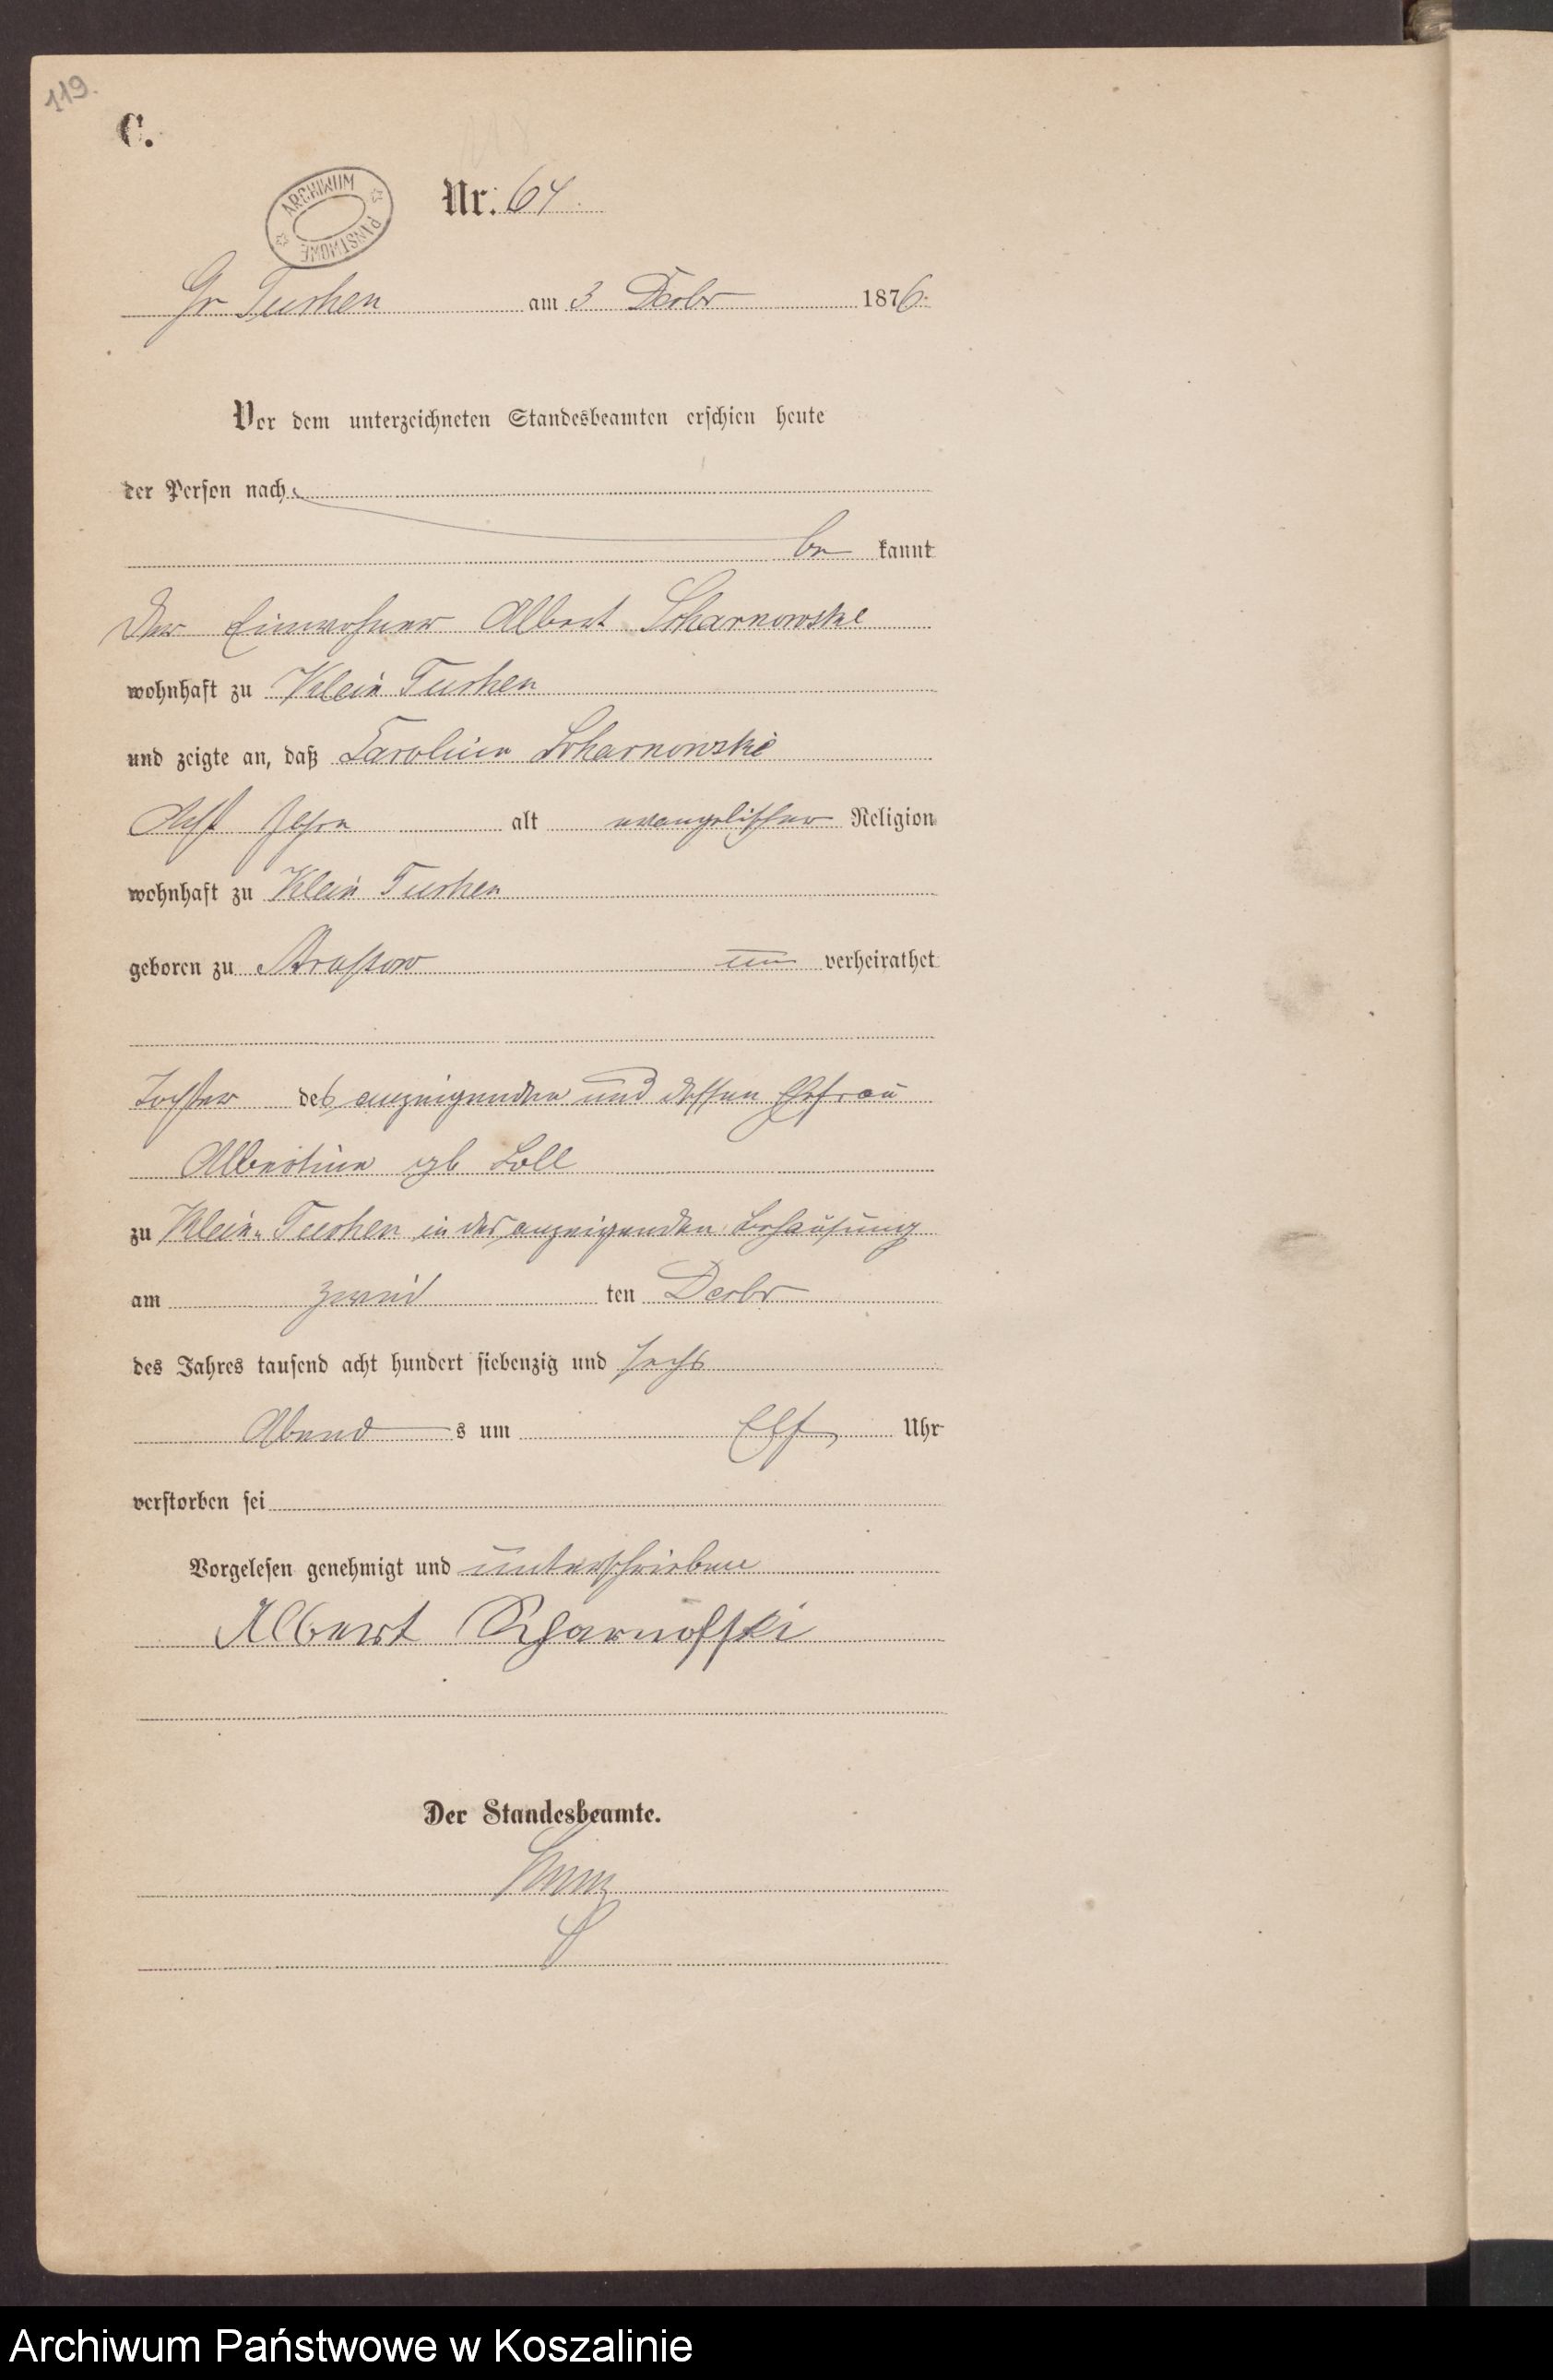 119.
C.
ARCHIWUM PAŃSTWOWE
Nr. 64.
Gr Tuchen am 3 Decbr 1876.
Vor dem unterzeichneten Standesbeamten erschien heute
der Person nach
be kannt
Der Einwohner Albert Scharnowski
wohnhaft zu Klein Tuchen
und zeigte an, daß Caroline Scharnowski
Acht Jahre alt evangelischer Religion
wohnhaft zu Klein Tuchen
geboren zu un verheirathet
Tochter des anzeigenden und dessen Ehefrau
Albertine gb Loll
zu Klein Tuchen in des anzeigenden Behausung
am zwei ten Decbr
des Jahres tausend acht hundert siebenzig und sechs
Abend s um Elf Uhr
verstorben sei
Vorgelesen genehmigt und unterschrieben
Albert Scharnofski
Der Standesbeamte.
Archiwum Państwowe w Koszalinie